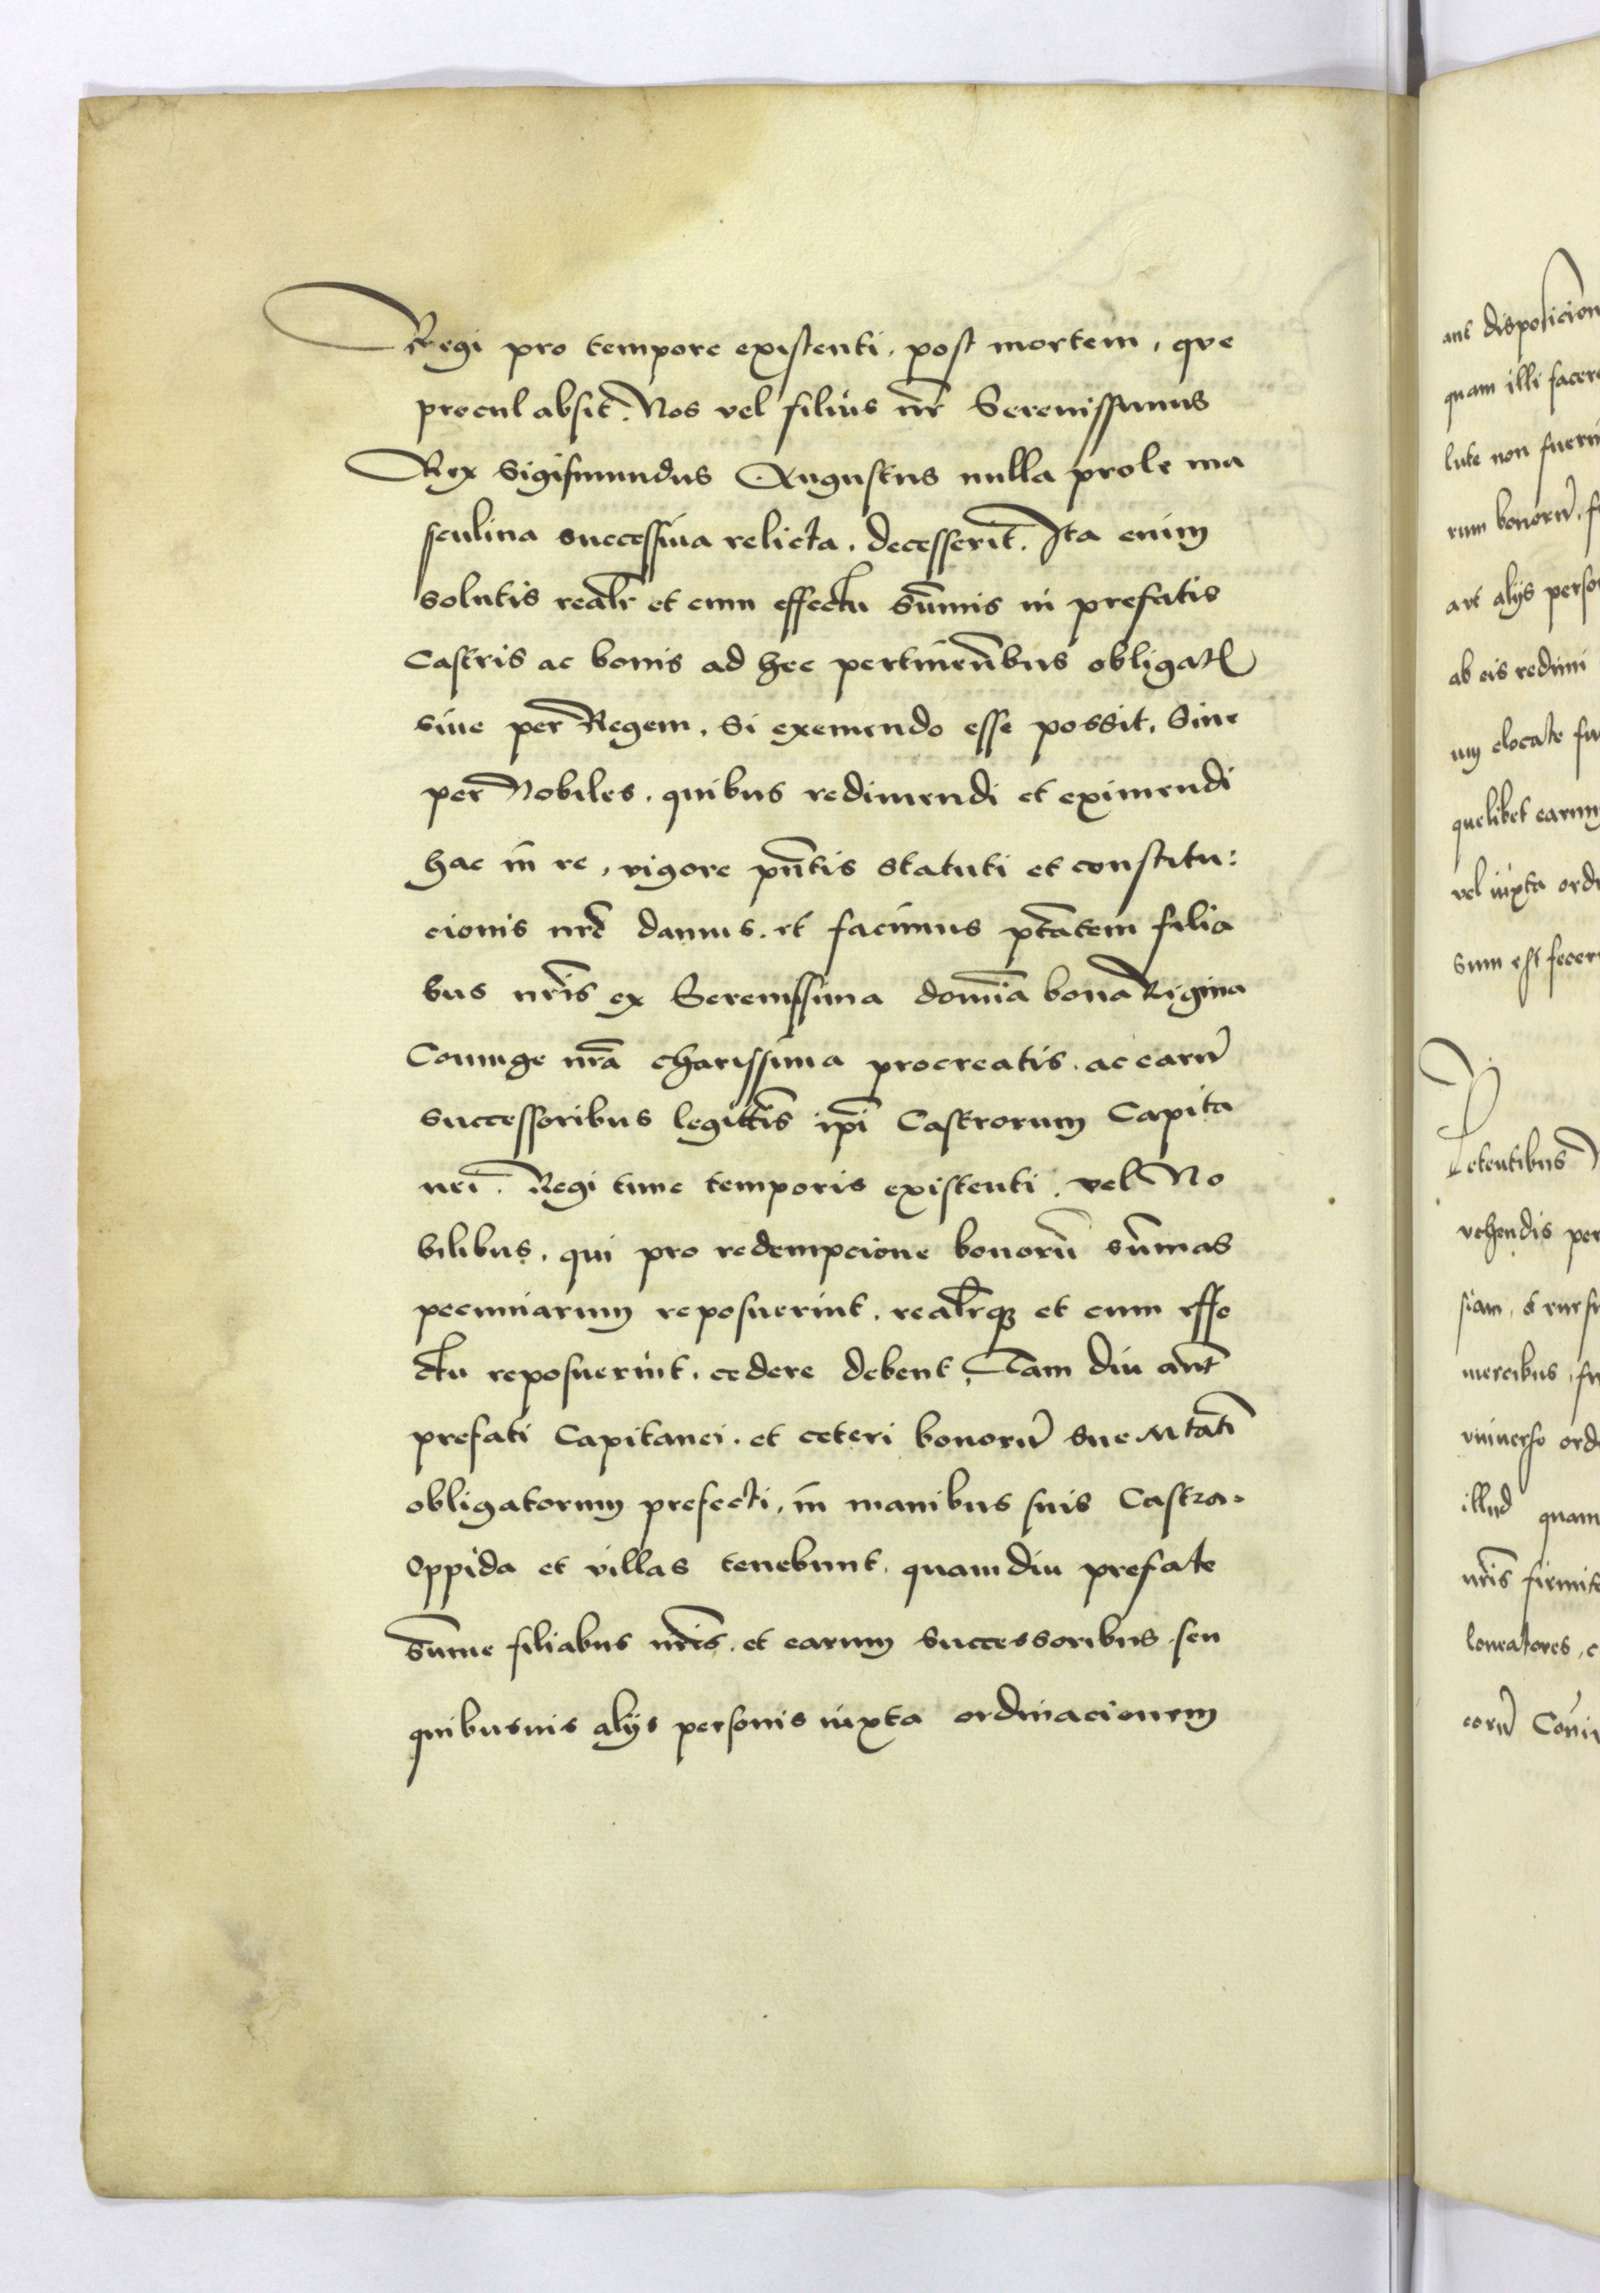 Regi pro tempore existenti, post mortem, que
procul absit. Nos vel filius nr̄ Serenissimus
Rex Sigismundus Augustus nulla prole ma
sculina successiua relicta, decesserit. Ita enim
solutis realr̄ et cum effectu sūmis in prefatis
Castris ac bonis ad hec pertinen̄bus obligat̄
siue per Regem, si exemendo esse possit, Siue
per Nobiles, quibus redimendi et eximendi
hac in re, vigore pn̄tis statuti et constitu:
cionis nrē damus, et facimus ptātem filia
bus nrīs ex Serenissima domīa bona Regina
Coniuge nrā charissima procreatis, ac earū
successoribus legittīs ip̄i Castrorum Capita
nei. Regi tunc temporis existenti, vel No
bilibus, qui pro redempcione bonorū sūmas
pecuniarum reposuerint, realr̄q; et cum effe
ctu reposuerint, cedere debent, Tam diu aūt
prefati Capitanei, et ceteri bonorū sue Mtātī
obligatorum prefecti, in manibus suis Castra,
Oppida et villas tenebunt, quamdiu prefate
sūme filiabus nrīs, et earum successoribus, seu
quibusuis alys personis iuxta ordinacionem
disposicion
quam illi facere
lute non fuerin
rum bonorū,
alys perso
ab eis redimi
elocate
quelibet earum
vel iuxta ordi
sum est fecer
etentibus
vehendis per
siam,
mercibus,
vniuerso ord
illud quam
nrīs firmite
eorū